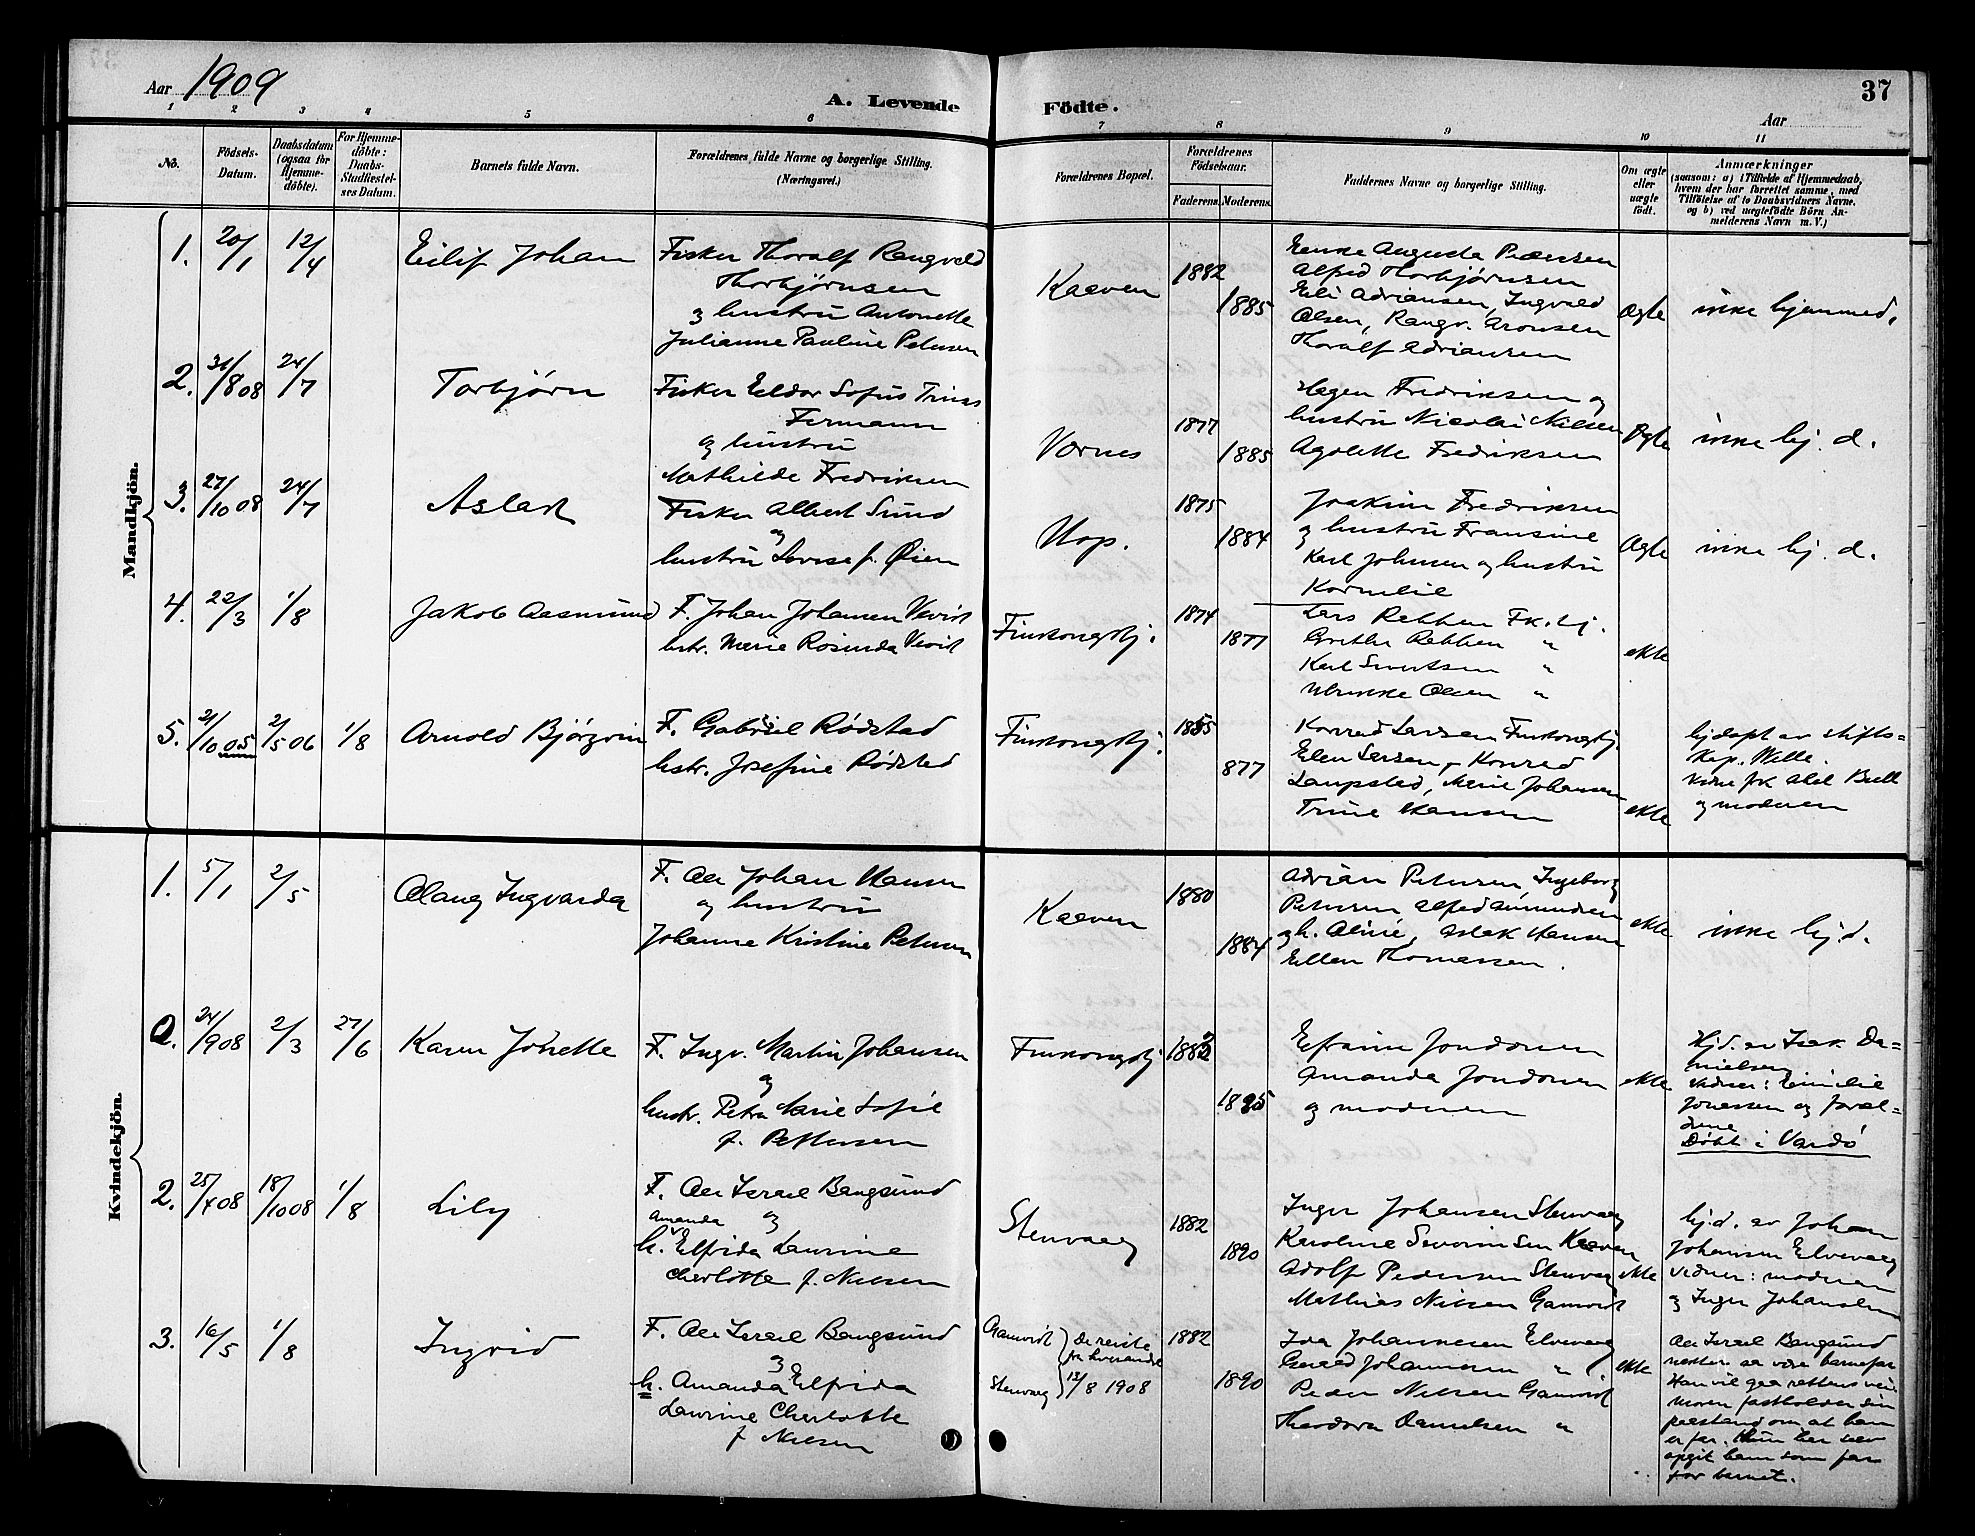 Aar 1909
A. Levende Födte.
37
Aar
1 2 3 4 5 6 7 8 9 10 11
No.
Födsels-
Datum.
Daabsdatum
(ogsaa for
Hjemme-
döbte).
For Hjemme-
döbte:
Daabs-
Stadfæstel-
ses Datum.
Barnets fulde Navn.
Forældrenes fulde Navne og borgerlige Stilling.
(Næringsvei.)
Forældrenes Bopæl.
Forældrenes
Födselsaar.
Faderens. Moderens.
Faddernes Navne og borgerlige Stilling.
Om ægte
eller
uægte
födt.
Anmærkninger
(saasom: a) i Tilfælde af Hjemmedaab,
hvem der har forrettet samme, med
Tilföielse af to Daabsvidners Navne,
og b) ved uægtefödte Börn An-
melderens Navn m. V.)
Mandkjön.
1. 20/1 12/4
Eilif Johan
Fisker Thoralf Rangvald
Thorbjørnsen
og hustru Antonette
Julianne Pauline Petersen
Kaaven
1882
1885
Augusta Pedersen
Alfred Thorbjørnsen
Eli Adriansen, Ingvald
Olsen, Rangv. Aronsen
Thoralf Adriansen
Ægte
inke hjemmed.
2. 31/8 08 24/7
Torbjørn
Fisker Eldor Sofus
Fermann
og hustru
Mathilde Fredriksen
Værnes
1877
1885
Hagen Fredriksen og
hustru Nicolai Nilsen
Agolette Fredriksen
Ægte
inke hj. d.
3. 27/10 08 24/7
Aslak
Fisker Albert Sund
og
hustru Lovise f. Øien
Hop.
1875
1884
Joakim Fredriksen
og hustru Fransine
Karl Johnsen og hustru
Kornelie
Ægte
inke hj. d.
4. 22/3 1/8
Jakob Aasmund
F. Johan Johansen
hstr. Marie Rosinda
Finkongkj.
1874
1877
Lars Rebben Fk.kj.
Grethe Rebben "
Karl Sivertsen "
Ulrikke Olsen "
ekte
5. 21/10 05 2/5 06 1/8
Arnold Bjørgvin
F. Gabriel Rødstad
hstr. Josefine Rødstad
Finkongkj.
1885
877
Konrad Larsen Finkongkj.
Elen Larsen, Konrad
Laupstad, Marie Johansen
Trine Hansen
ekte
hj.døpt av stifts=
kap. Wille.
Bull
og moderen
Kvindekjön.
1. 5/1 2/5
Olaug Ingvarda
F. Ole Johan Hansen
og hustru
Johanne Kristine Petersen
Kaaven
1880
1884
Adrian Petersen, Ingeborg
Petersen Alfred Amundsen
og h. Oline, Aslak Hansen
Ellen Thomassen.
ekte
inke hj.d.
24/9 08 2/3 27/6
Karen Jonette
F. Ingv. Martin Johansen
og
hustr. Petra Marie Sofie
f. Pettersen
Finkongkj
Efraim
Amanda
og moderen
ekte
Hj.d. av Isak Da=
nielsen
Vidner: Emilie
Jonassen og foræl=
drene
Døbt i Vardø
2. 25/4 08 18/10 08 1/8
Lily
F. Ole Israel Bangsund
Amanda og
h. Elfrida Laurine
Charlotte f. Nilsen
Stenvaag
1882
1890
Inger Johansen Stenvaag
Karoline Severinsen Kaaven
Adolf Pedersen Stenvaag
Mathias Nilsen Gamvik
ekte
hj.d. av Johan
Johansen Elvevaag
Vidner: moderen
og Inger Johansen
3. 16/5 1/8
Ingrid
F. Ole Israel Bangsund
og
h. Amanda Elfrida
Laurine Charlotte
f. Nilsen
Gamvik
Stenvaag
De reiste
fra hverandre
13/8 1908
1882
1890
Ida Johannesen Elvevaag
Johannesen "
Peder Nilsen Gamvik
Theodora Danielsen "
ekte
Ole Israel Bangsund
nekter aa være barnefar
Han vil gaa rettens vei
moren fastholder sin
paastand om at han
er far. Hun har selv
opgit ham som far
for barnet.